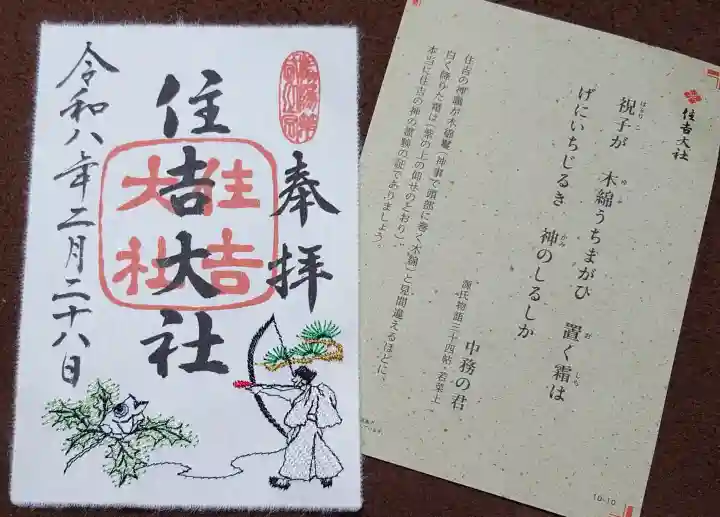 奉拝
住吉大社
住吉
大社
令和八年二月二十八日
住吉大社
祝子が 木綿うちまがひ 置く霜は
はふりこ ゆふ おしも
げにいちじるき 神のしるしか
かみ
中務の君
源氏物語三十四帖・若菜上
住吉の神職が木綿鬘(神事で頭部に巻く木綿)と見間違えるほどに、
白く降りた霜は(紫の上の仰せのとおり)、
本当に住吉の神の霊験の証でありましょう。
10-10